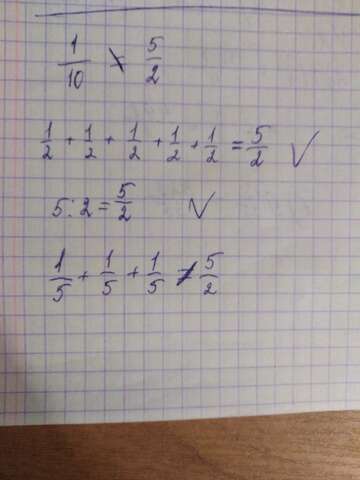 1/10 ≠ 5/2
1/2 + 1/2 + 1/2 + 1/2 + 1/2 = 5/2 ✓
5 : 2 = 5/2 ✓
1/5 + 1/5 + 1/5 ≠ 5/2